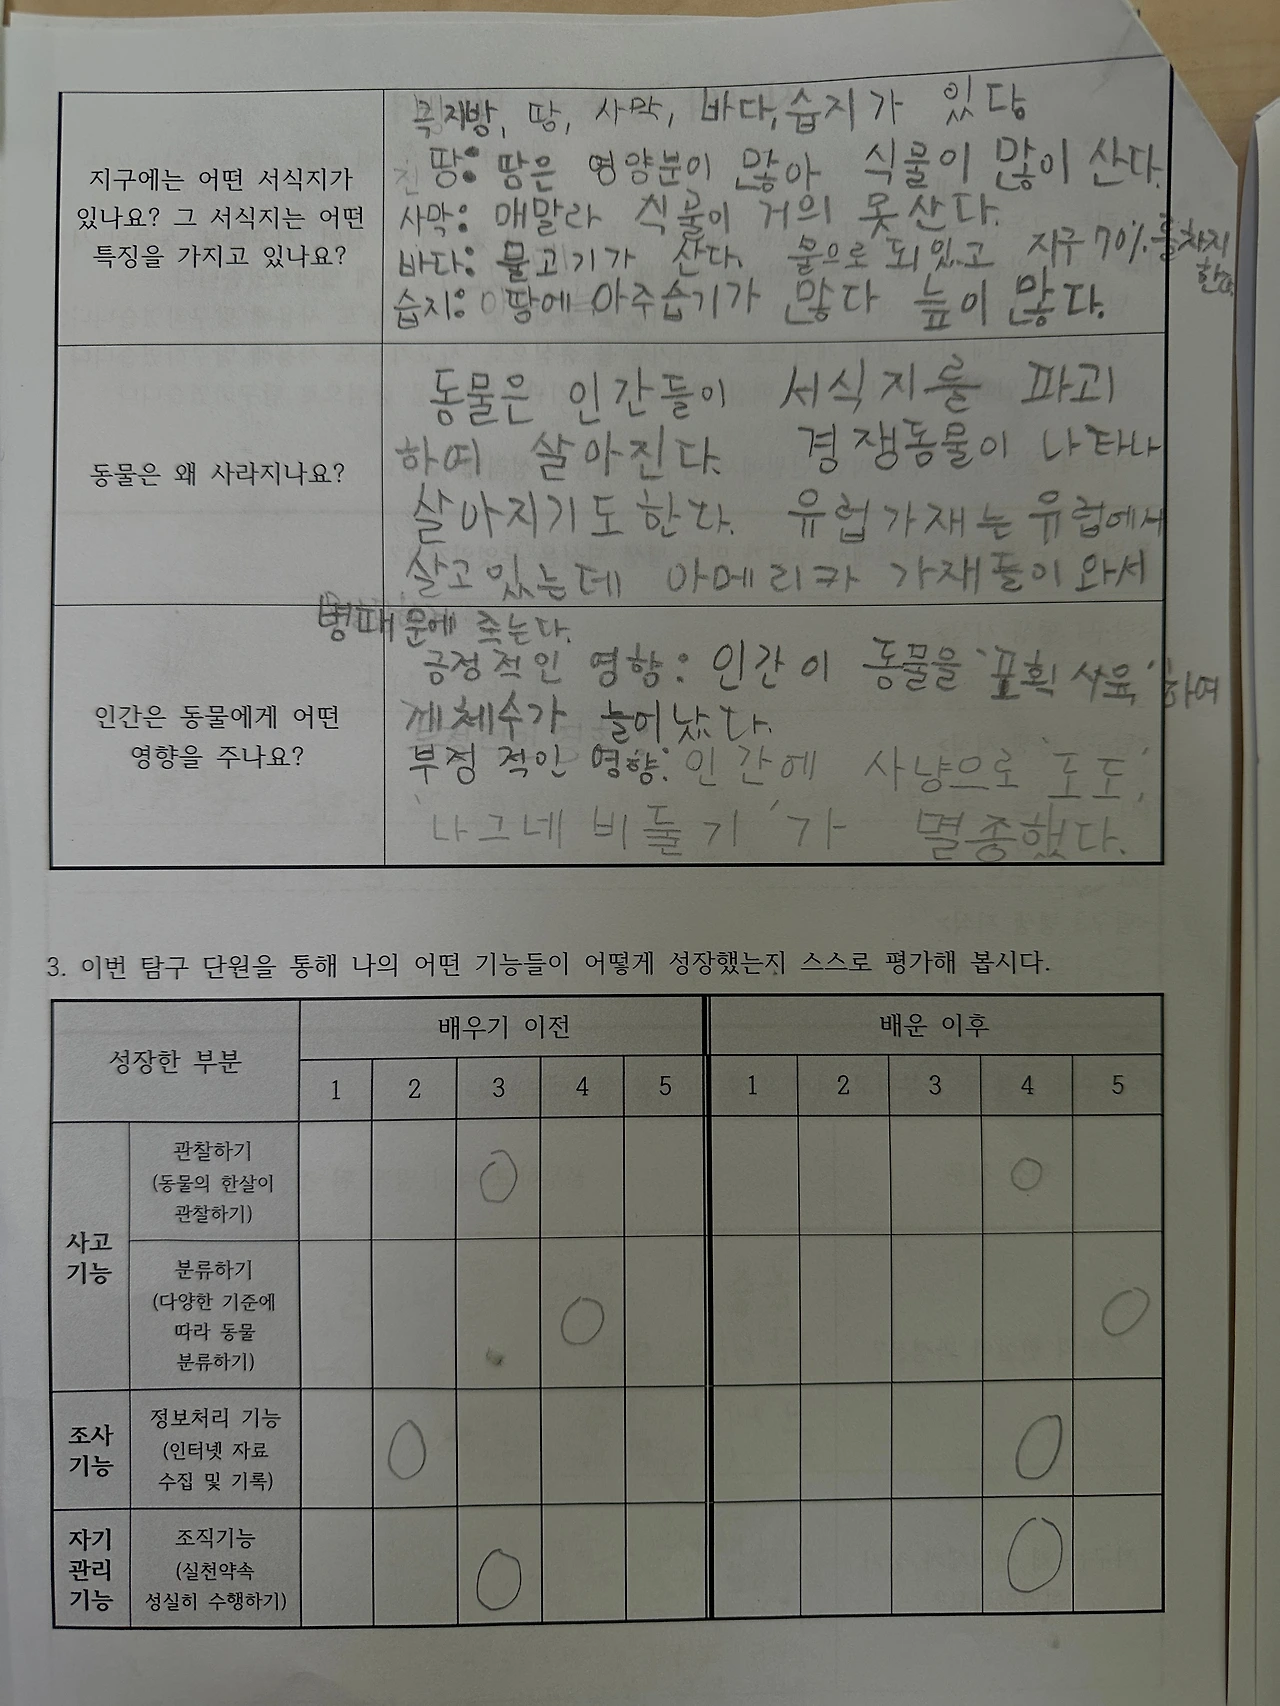 지구에는 어떤 서식지가
있나요? 그 서식지는 어떤
특징을 가지고 있나요?
극지방, 땅, 사막, 바다, 습지가 있다
땅: 땅은 영양분이 많아 식물이 많이 산다.
사막: 매말라 식물이 거의 못산다.
바다: 물고기가 산다. 물으로 되있고 지구 70%를 차지
한다.
습지: 땅에 아주습기가 많다 늪이 많다.
동물은 왜 사라지나요?
동물은 인간들이 서식지를 파괴
하여 살아진다. 경쟁동물이 나타나
살아지기도 한다. 유럽가재는 유럽에서
살고있는데 아메리카 가재들이 와서
병때문에 죽는다.
인간은 동물에게 어떤
영향을 주나요?
긍정적인 영향: 인간이 동물을 '포획 사육'하여
께체수가 늘어났다.
부정적인 영향: 인간에 사냥으로 '도도',
'나그네 비둘기'가 멸종했다.
3. 이번 탐구 단원을 통해 나의 어떤 기능들이 어떻게 성장했는지 스스로 평가해 봅시다.
성장한 부분 배우기 이전 배운 이후
1 2 3 4 5 1 2 3 4 5
사고
기능
관찰하기
(동물의 한살이
관찰하기)
분류하기
(다양한 기준에
따라 동물
분류하기)
조사
기능
정보처리 기능
(인터넷 자료
수집 및 기록)
자기
관리
기능
조직기능
(실천약속
성실히 수행하기)